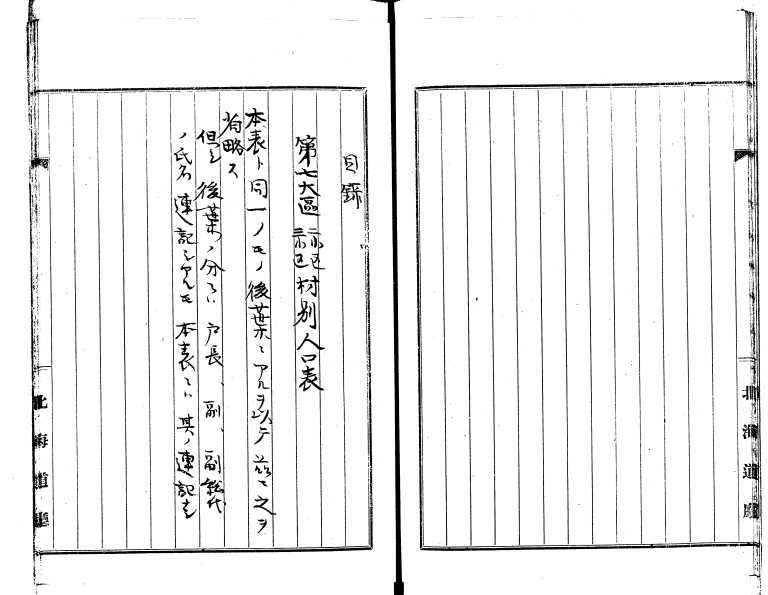 北海道廳
目錄
第七大區 二小區 三小區 村別人口表
本表ト同一ノモノ後葉ニアルヲ以テ茲ニ之ヲ
省略ス
但シ後葉ノ分ニハ戸長、副、副総代
ノ氏名連記シアルモ本表ニハ其ノ連記ナシ
北海道廳